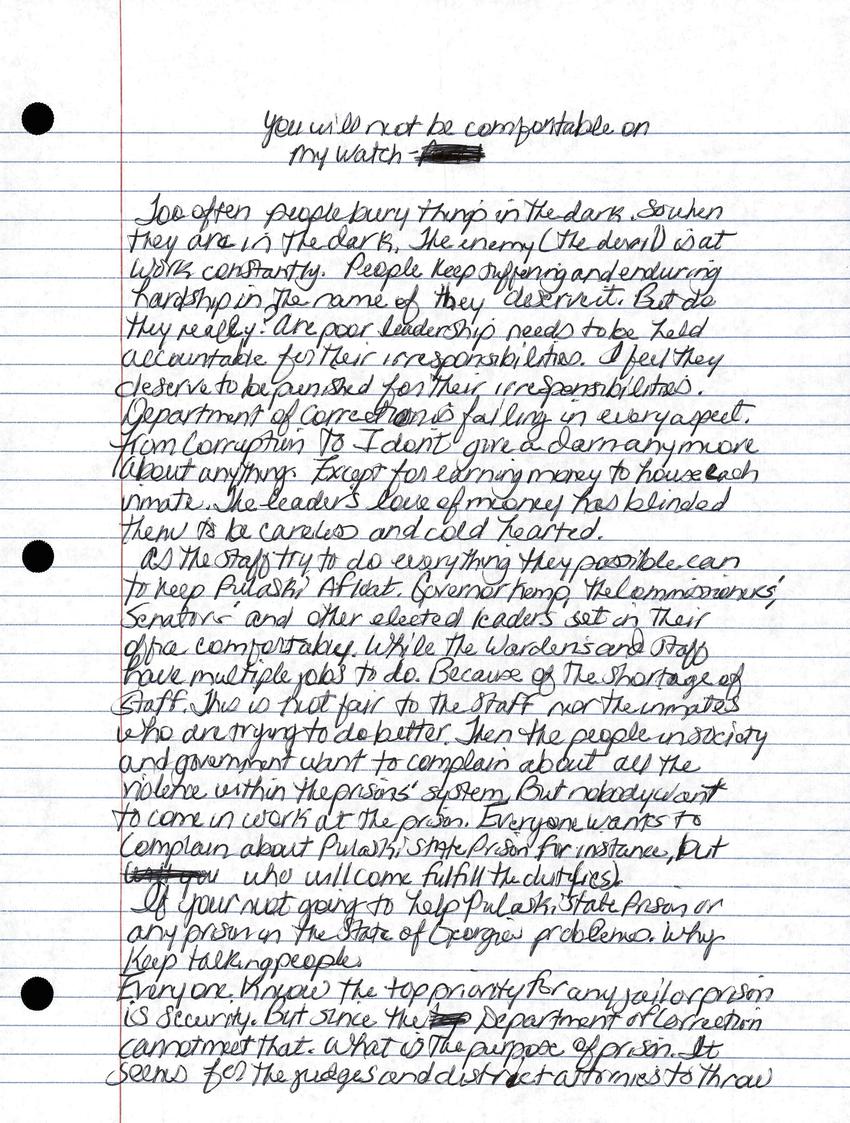 You will not be comfortable on
My Watch-
Too often people bury things in the dark. So when
they are in the dark, The enemy (the devil) is at
work constantly. People keep suffering and enduring
hardship in the name of they deserve it. But do
they really? Are poor leadership needs to be held
accountable for their irresponsibilities. I feel they
deserve to be punished for their irresponsibilities.
Department of Correction is failing in every aspect.
From Corruption To I don't give a darn anymore
about anything. Except for earning money to house each
inmate. The leader's love of money has blinded
them to be careless and cold hearted.
As the staff try to do everything they possible can
to keep Pulaski Afloat. Governor Kemp, the Commissioners',
Senators' and other elected leaders set in their
office comfortably. While the Wardens and staff
have multiple jobs to do. Because of the shortage of
staff. This is not fair to the staff nor the inmates
who are trying to do better. Then the people in society
and government want to complain about all the
violence within the prisons' system. But nobody want
to come in work at the prison. Everyone wants to
complain about Pulaski State Prison for instance, but
who will come fulfill the duti(es).
If your not going to help Pulaski State Prison or
any prison in the State of Georgia problems. Why
keep talking people.
Everyone. Know the top priority for any jail or prison
is security. But since the Department of Correction
cannot meet that. What is the purpose of prison. It
seems for the judges and district attornies to throw